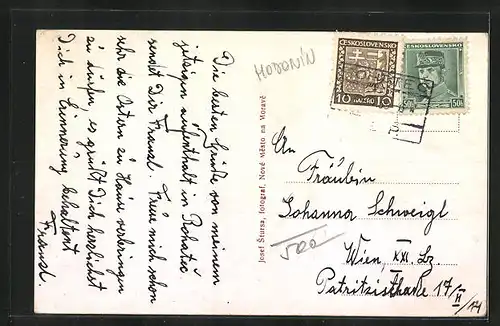 Die besten Grüße von meinem
jetzigen Aufenthalt in Rohatec
sendet Dir Franzl. Freue mich schon
sehr die Ostern zu Hause verbringen
zu dürfen, es grüßt Dich herzlichst
Dich in Erinnerung behaltent
Franzl.
HODONÍN
ČESKOSLOVENSKO
10 HALÉŘŮ 10
ČESKOSLOVENSKO
50h 50h
Josef Štursa, fotograf, Nové Město na Moravě
An
Fräulein
Johanna Schweigl
Wien, XXI. Lz.
Patrizistraße 17/II/14
500